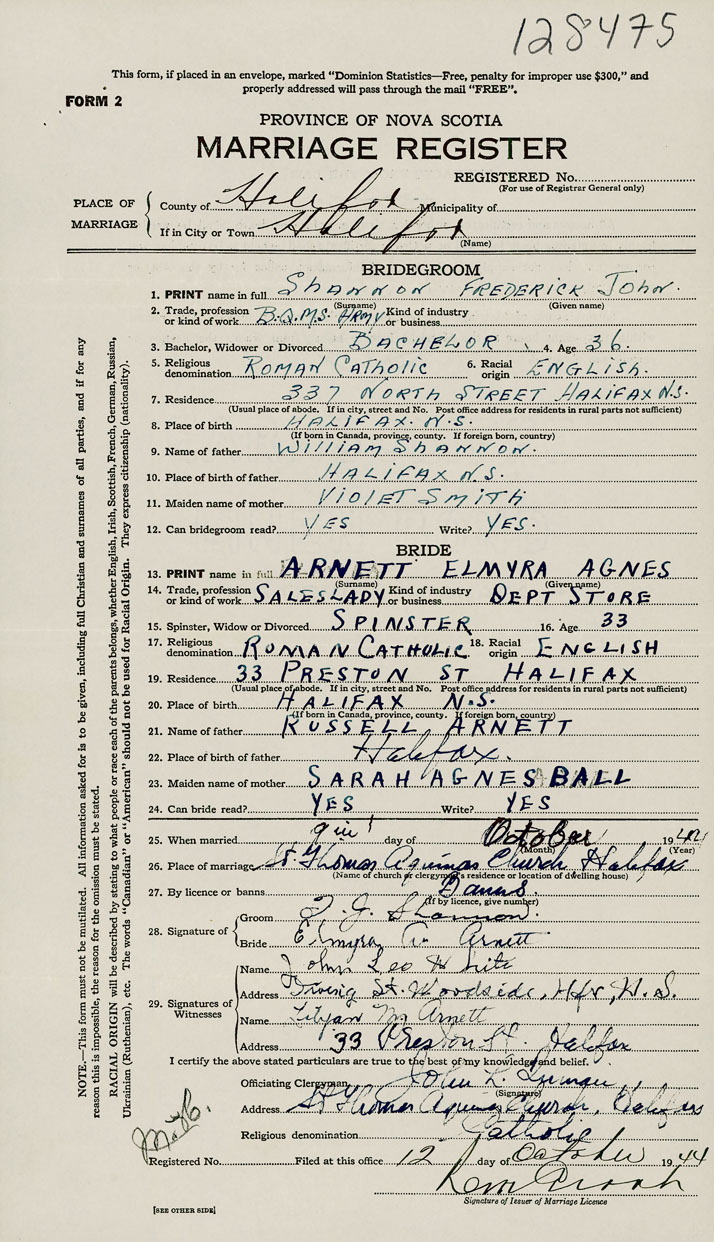 128475
This form, if placed in an envelope, marked "Dominion Statistics—Free, penalty for improper use $300," and
properly addressed will pass through the mail "FREE".
FORM 2
PROVINCE OF NOVA SCOTIA
MARRIAGE REGISTER
REGISTERED No.
(For use of Registrar General only)
PLACE OF MARRIAGE
County of Halifax Municipality of
If in City or Town Halifax
(Name)
BRIDEGROOM
1. PRINT name in full SHANNON FREDERICK JOHN.
(Surname) (Given name)
2. Trade, profession or kind of work B.Q.M.S. ARMY Kind of industry or business
3. Bachelor, Widower or Divorced BACHELOR 4. Age 36
5. Religious denomination ROMAN CATHOLIC 6. Racial origin ENGLISH.
7. Residence 337 NORTH STREET HALIFAX N.S.
(Usual place of abode. If in city, street and No. Post office address for residents in rural parts not sufficient)
8. Place of birth HALIFAX. N.S.
(If born in Canada, province, county. If foreign born, country)
9. Name of father WILLIAM SHANNON.
10. Place of birth of father HALIFAX N.S.
11. Maiden name of mother VIOLET SMITH
12. Can bridegroom read? YES Write? YES.
BRIDE
13. PRINT name in full ARNETT ELMYRA AGNES
(Surname) (Given name)
14. Trade, profession or kind of work SALESLADY Kind of industry or business DEPT STORE
15. Spinster, Widow or Divorced SPINSTER 16. Age 33
17. Religious denomination ROMAN CATHOLIC 18. Racial origin ENGLISH
19. Residence 33 PRESTON ST HALIFAX
(Usual place of abode. If in city, street and No. Post office address for residents in rural parts not sufficient)
20. Place of birth HALIFAX N.S.
(If born in Canada, province, county. If foreign born, country)
21. Name of father RUSSELL ARNETT
22. Place of birth of father Halifax.
23. Maiden name of mother SARAH AGNES BALL
24. Can bride read? YES Write? YES
25. When married day of October 1944
(Month) (Year)
26. Place of marriage St Thomas Aquinas Church Halifax
(Name of church or clergyman's residence or location of dwelling house)
27. By licence or banns Banns.
(If by licence, give number)
28. Signature of
Groom F. J. Shannon.
Bride Elmyra A. Arnett
29. Signatures of Witnesses
Name John Leo
Address Irving St. Woodside, Hfx, N.S.
Name Lilyan M Arnett
Address 33 Preston St. Halifax
I certify the above stated particulars are true to the best of my knowledge and belief.
Officiating Clergyman John L.
(Signature)
Address St Thomas Aquinas Church, Halifax
Religious denomination Catholic
Registered No. Filed at this office 12 day of October 1944
Signature of Issuer of Marriage Licence
[SEE OTHER SIDE]
NOTE.—This form must not be mutilated. All information asked for is to be given, including full Christian and surnames of all parties, and if for any
reason this is impossible, the reason for the omission must be stated.
RACIAL ORIGIN will be described by stating to what people or race each of the parents belongs, whether English, Irish, Scottish, French, German, Russian,
Ukrainian (Ruthenian), etc. The words "Canadian" or "American" should not be used for Racial Origin. They express citizenship (nationality).